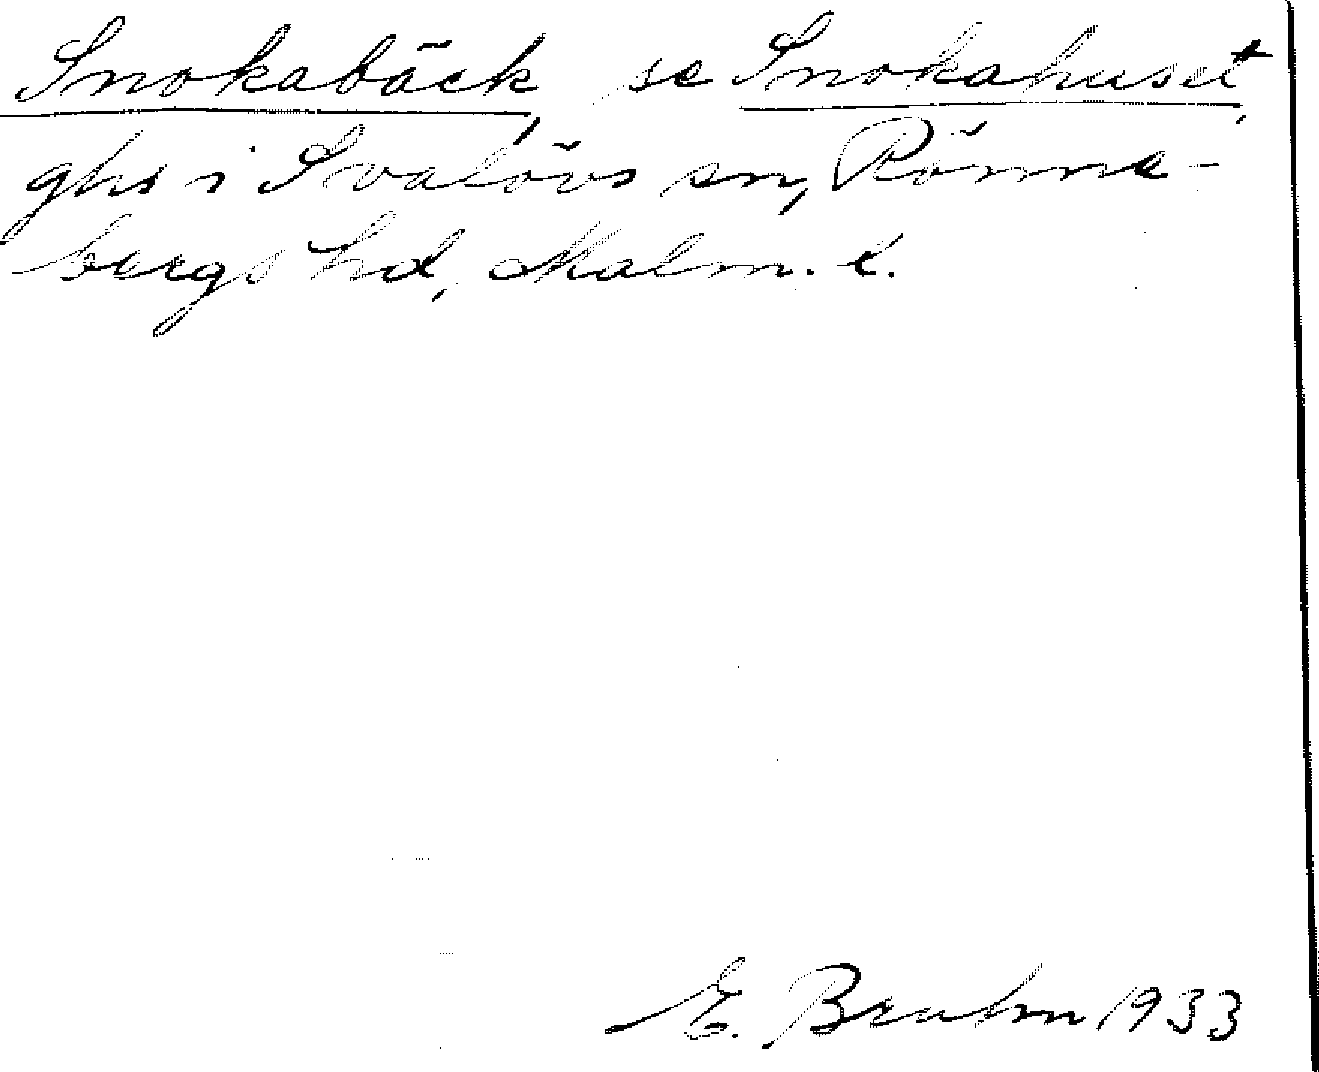 Snokabäck, se Snokahuset,
ghs i Svalövs sn, Rönne-
bergs hd, Malm. l.
E. Bruhn 1933